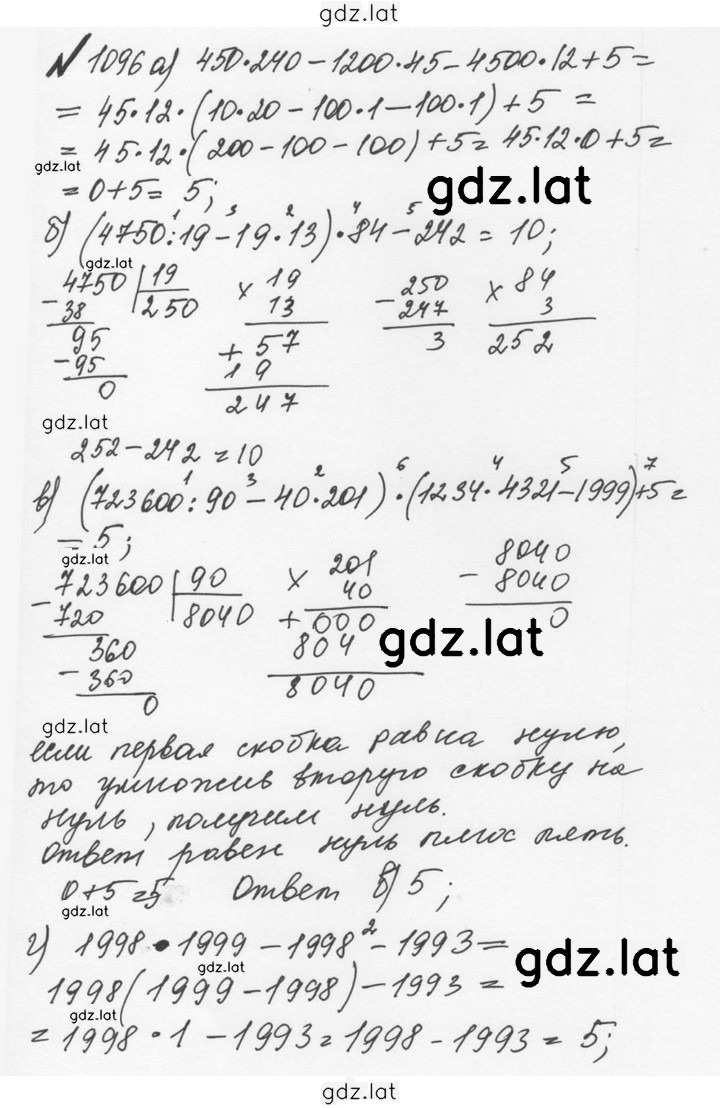 gdz.lat
№ 1096 а) 450·240 – 1200·45 – 4500·12 + 5 =
= 45·12·(10·20 – 100·1 – 100·1) + 5 =
= 45·12·(200 – 100 – 100) + 5 = 45·12·0 + 5 =
gdz.lat
= 0 + 5 = 5;
gdz.lat
1 3 2 4 5
б) (4750:19 – 19·13)·84 – 242 = 10;
gdz.lat
– 4750 | 19 × 19 – 250 × 84
38 250 13 247 3
95 + 57 3 252
– 95 19
0 247
gdz.lat
252 – 242 = 10
1 3 2 6 4 5 7
в) (723600:90 – 40·201)·(1234·4321 – 1999) + 5 =
= 5;
gdz.lat
– 723600 | 90 × 201 – 8040
720 8040 40 8040
360 + 000 0
– 360 804
0 8040
gdz.lat
gdz.lat
если первая скобка равна нулю,
то умножив вторую скобку на
нуль, получим нуль.
Ответ равен нуль плюс пять.
0 + 5 = 5 Ответ в) 5;
gdz.lat
г) 1998·1999 – 1998² – 1993 =
gdz.lat
gdz.lat
1998(1999 – 1998) – 1993 =
gdz.lat
= 1998·1 – 1993 = 1998 – 1993 = 5;
gdz.lat